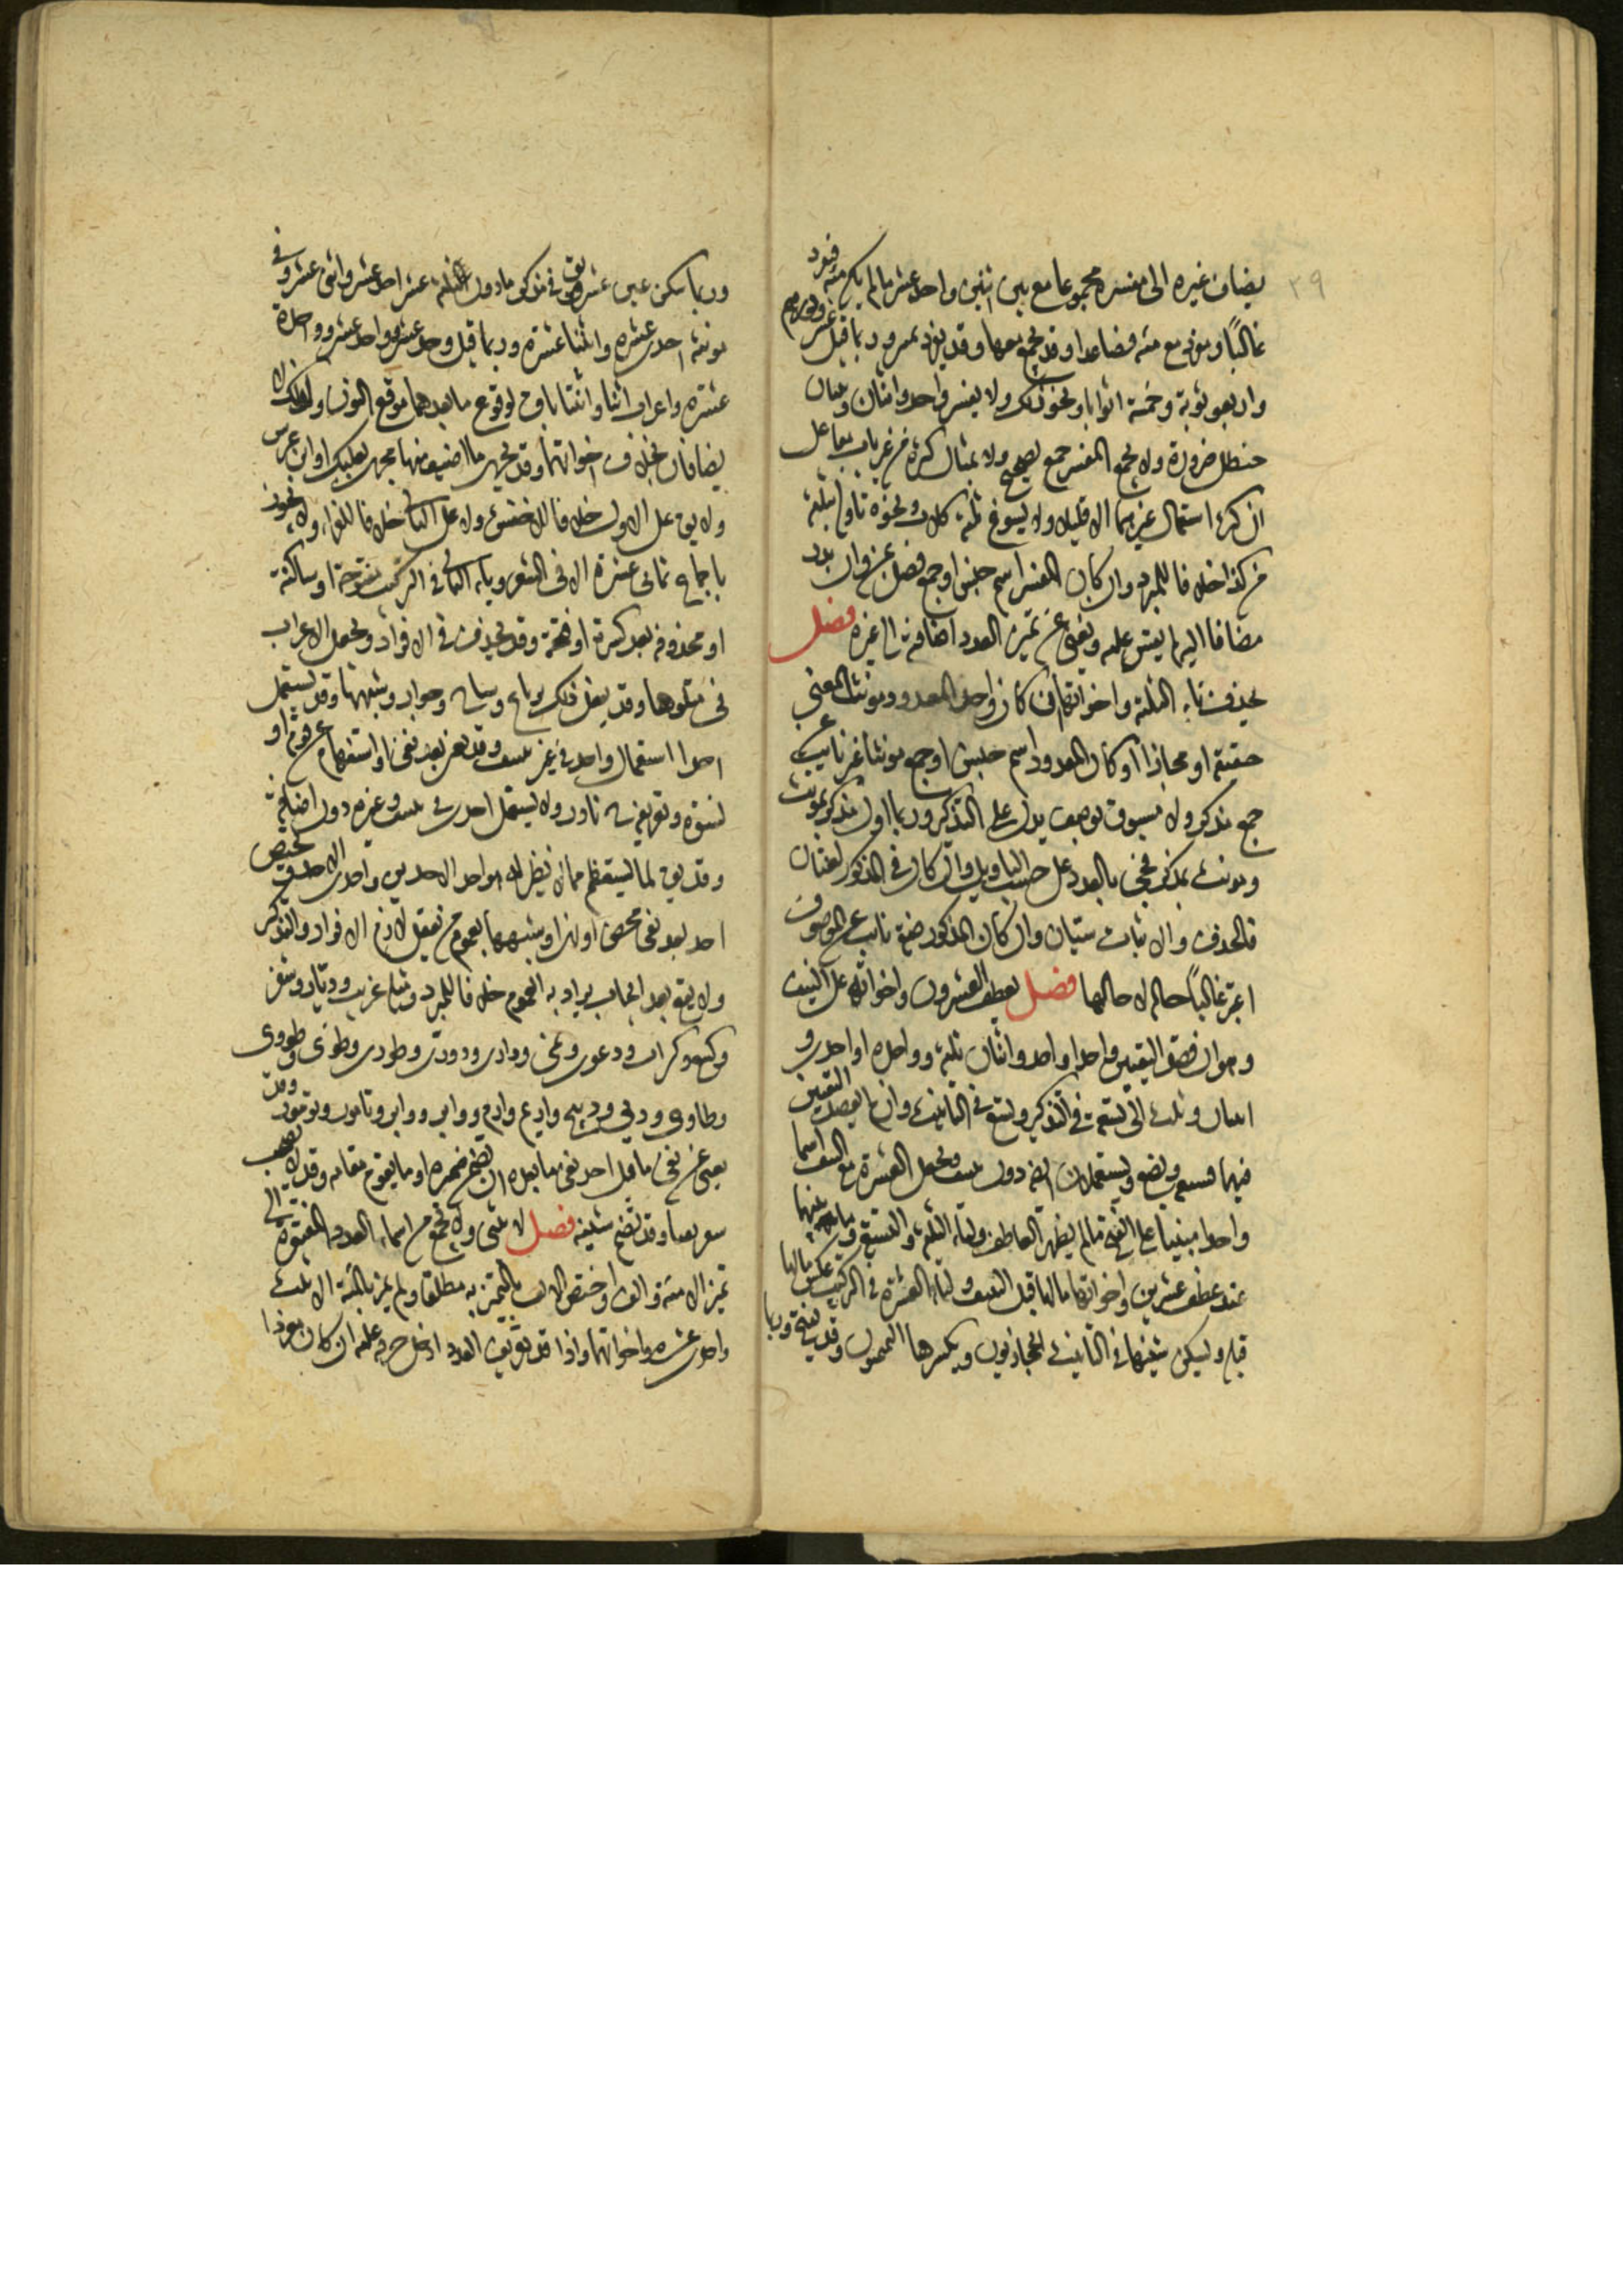 ٣٩
يضاف غيره الى مفسره مجموعا مع بين اثنين واحد عشر ما لم يكن مئة فيفرد
غالبًا ومفردا مع مئة فصاعدا وقد يجمع معها وقد يفرد تمييز وربما قيل عشرو درهم
واربعو ثوبة وخمسة اثوابا ونحو ذلك ولا يفسر واحد واثنان وثنتا
حنظل ضرورة ولا يجمع المفسر جمع تصحيح ولا بمثال كثرة من غير باب مفاعل
ان كثر استعمال غيرهما الا قليلا ولا يسوغ ثلثة كلاب ونحوه تاوله بثلثة
من كذا خلافا للمبرد وان كان المفسر اسم جنس او جمع فصل بمن وان ندر
مضافا اليه لم يقس عليه ويغني عن تمييز العدد اضافته الى غيره فصل
تحذف تاء الثلثة واخواتها ان كان واحد المعدود مونث المعنى
حقيقة او مجازا او كان المعدود اسم جنس او جمع مونثا غير نايب عن
جمع مذكر ولا مسبوق بوصف يدل على التذكير وربما اول مذكر بمونث
ومونث بمذكر فجئ بالعدد على حسب التاويل وان كان في المذكور لغتان
فالحذف والاثبات سيان وان كان المذكور صفة نابت عن الموصوف
اعتبر غالبًا حاله لا حالها فصل يعطف العشرون واخواته على النيف
وهو ان قصد التعيين واحد او احد واثنان ثلثة وواحدة او احدى و
اثنتان وثلث الى تسعة في التذكير وتسع في التانيث وان لم يقصد التعيين
فيهما فبضعة وبضع ويستعملان ايضا دون نيف وتجعل العشرة مع النيف اسما
واحدا مبنيا على الفتح ما لم يظهر العاطف ولتاء الثلثة والتسعة وما بينهما
عند عطف عشرين واخواتها ما لها قبل النيف ولتاء العشرة في التركيب عكس ما لها
قبله ويسكن شينها في التانيث الحجازيون ويكسرها التميميون وقد تفتح وربما
وربما سكن عين عشر ويقال في مذكر ما دون الثلثة عشر احد عشر واثنى عشر وفي
مونثه احدى عشرة واثنتا عشرة وربما قيل وحد عشر وواحد عشر وواحدة
عشرة واعراب اثنا واثنتا باق لوقوع ما بعدهما موقع النون ولذلك لا
يضافان بخلاف اخواتهما وقد يجرى ما اضيف منها مجرى بعلبك او ابن عرس
ولا يقاس على الاول خلافا للاخفش ولا على الثاني خلافا للفراء ولا يجوز
باجماع ثمانى عشرة الا في الشعر وياء الثماني في التركيب مفتوحة او ساكنة
او محذوفة بعد كسرة او فتحة وقد تحذف في الافراد ويجعل الاعراب
في متلوها وقد يفعل ذلك برباع وشناح وجوار وشبهها وقد يستعمل
احد استعمال واحد في غير نيف وقد يغني بعد نفي او استفهام عن قوم او
نسوة وتعريفه نادر ولا يستعمل احدى في نيف وغيره دون اضافة
وقد يقال لما يستعظم مما لا نظير له هو احد الاحدين واحدى الاحد ويختص
احد بعد نفي محض او نهي او شبههما بعموم من يعقل لازم الافراد والتذكير
ولا يقع بعد ايجاب يراد به العموم خلافا للمبرد ومثله عريب وديار وشفر
وكتيع وكراب ودعوى ونمى ودارى ودورى وطورى وطوئى وطووى
وطاوى ودبى ودبيج واريم وارم ووابر ووابن وتامور وتومور وقد
يغني عن نفي ما قبل احد نفي ما بعده ان تضمن ضميره او ما يقوم مقامه وقد لا يصحب
شفر نفيا وقد تضم شينه فصل لا يثنى ولا يجمع من اسماء العدد المفتقرة الى
تمييز الا مئة والف واختص الالف بالتمييز به مطلقا ولم يميز بالمئة الا ثلث
واحدى عشرة واخواتها واذا قصد تعريف العدد ادخل حرفه عليه ان كان مفردا